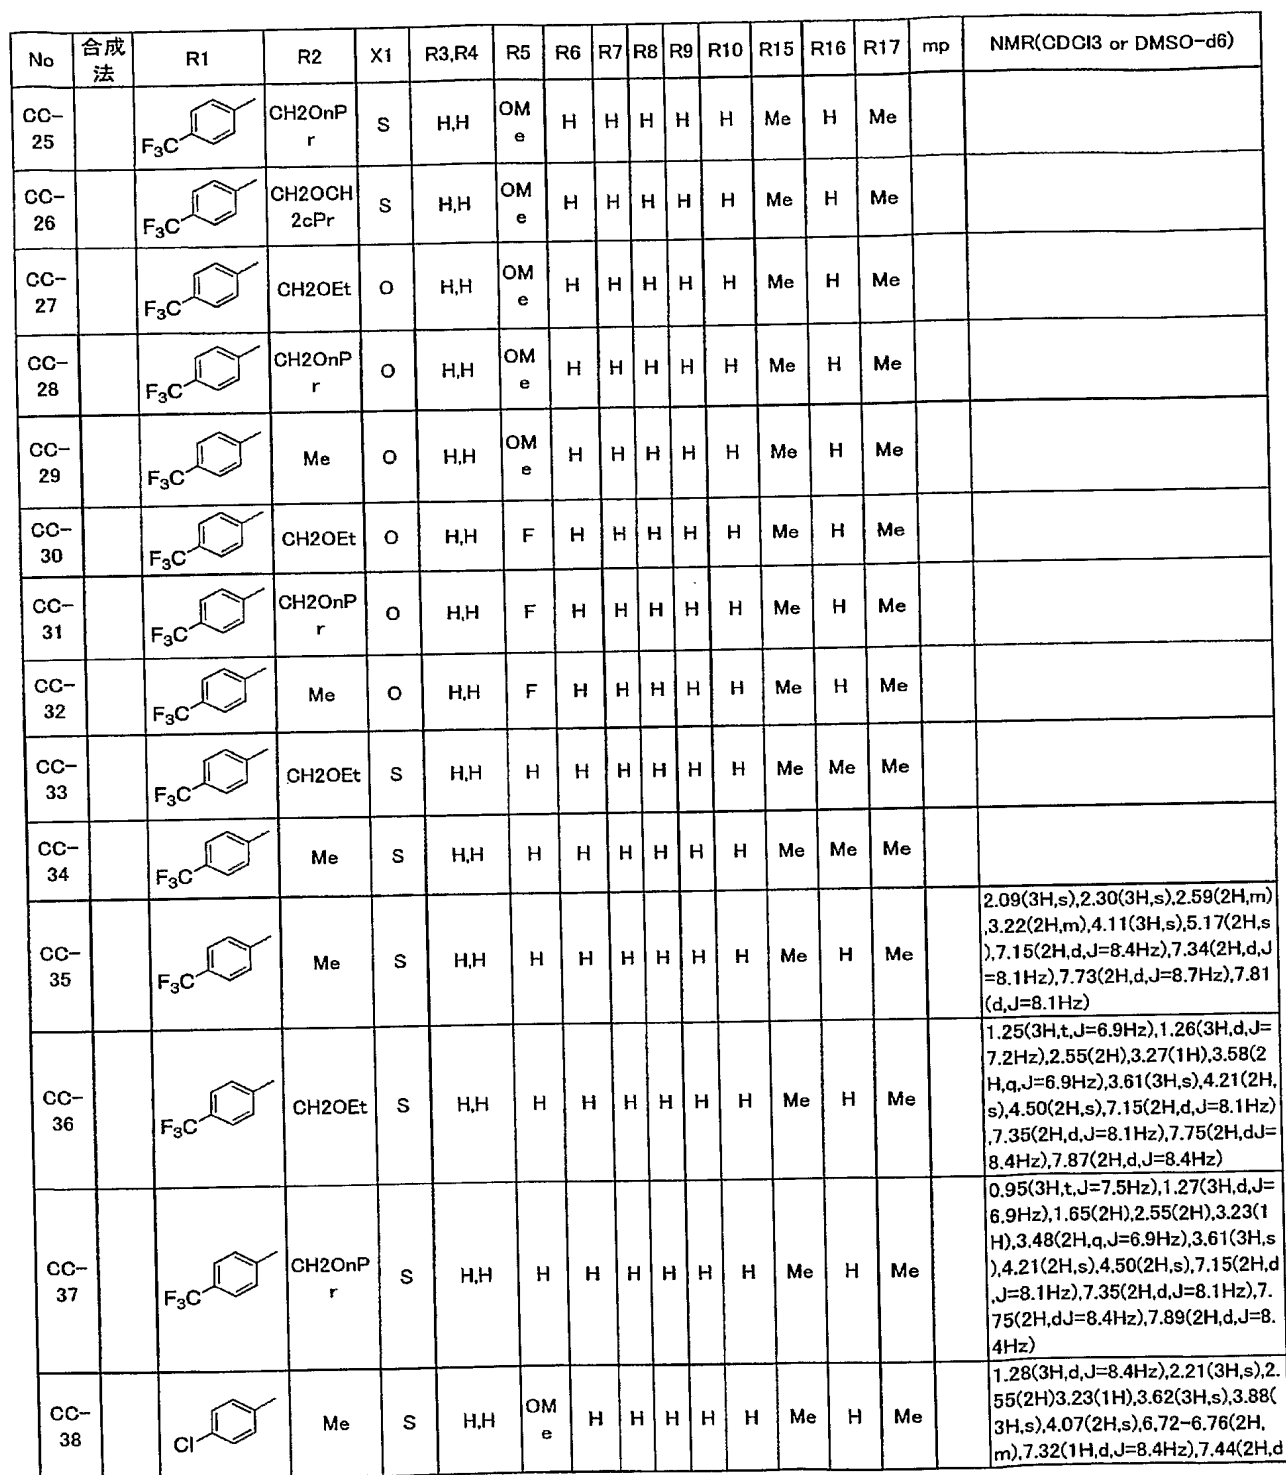 No 合成法 R1 R2 X1 R3,R4 R5 R6 R7 R8 R9 R10 R15 R16 R17 mp NMR(CDCl3 or DMSO-d6)
CC-25 F3C CH2OnPr S H,H OMe H H H H H Me H Me
CC-26 F3C CH2OCH2cPr S H,H OMe H H H H H Me H Me
CC-27 F3C CH2OEt O H,H OMe H H H H H Me H Me
CC-28 F3C CH2OnPr O H,H OMe H H H H H Me H Me
CC-29 F3C Me O H,H OMe H H H H H Me H Me
CC-30 F3C CH2OEt O H,H F H H H H H Me H Me
CC-31 F3C CH2OnPr O H,H F H H H H H Me H Me
CC-32 F3C Me O H,H F H H H H H Me H Me
CC-33 F3C CH2OEt S H,H H H H H H H Me Me Me
CC-34 F3C Me S H,H H H H H H H Me Me Me
CC-35 F3C Me S H,H H H H H H H Me H Me
2.09(3H,s),2.30(3H,s),2.59(2H,m)
,3.22(2H,m),4.11(3H,s),5.17(2H,s
),7.15(2H,d,J=8.4Hz),7.34(2H,d,J
=8.1Hz),7.73(2H,d,J=8.7Hz),7.81
(d,J=8.1Hz)
CC-36 F3C CH2OEt S H,H H H H H H H Me H Me
1.25(3H,t,J=6.9Hz),1.26(3H,d,J=
7.2Hz),2.55(2H),3.27(1H),3.58(2
H,q,J=6.9Hz),3.61(3H,s),4.21(2H,
s),4.50(2H,s),7.15(2H,d,J=8.1Hz)
,7.35(2H,d,J=8.1Hz),7.75(2H,dJ=
8.4Hz),7.87(2H,d,J=8.4Hz)
CC-37 F3C CH2OnPr S H,H H H H H H H Me H Me
0.95(3H,t,J=7.5Hz),1.27(3H,d,J=
6.9Hz),1.65(2H),2.55(2H),3.23(1
H),3.48(2H,q,J=6.9Hz),3.61(3H,s
),4.21(2H,s),4.50(2H,s),7.15(2H,d
,J=8.1Hz),7.35(2H,d,J=8.1Hz),7.
75(2H,dJ=8.4Hz),7.89(2H,d,J=8.
4Hz)
CC-38 Cl Me S H,H OMe H H H H H Me H Me
1.28(3H,d,J=8.4Hz),2.21(3H,s),2.
55(2H)3.23(1H),3.62(3H,s),3.88(
3H,s),4.07(2H,s),6.72-6.76(2H,
m),7.32(1H,d,J=8.4Hz),7.44(2H,d